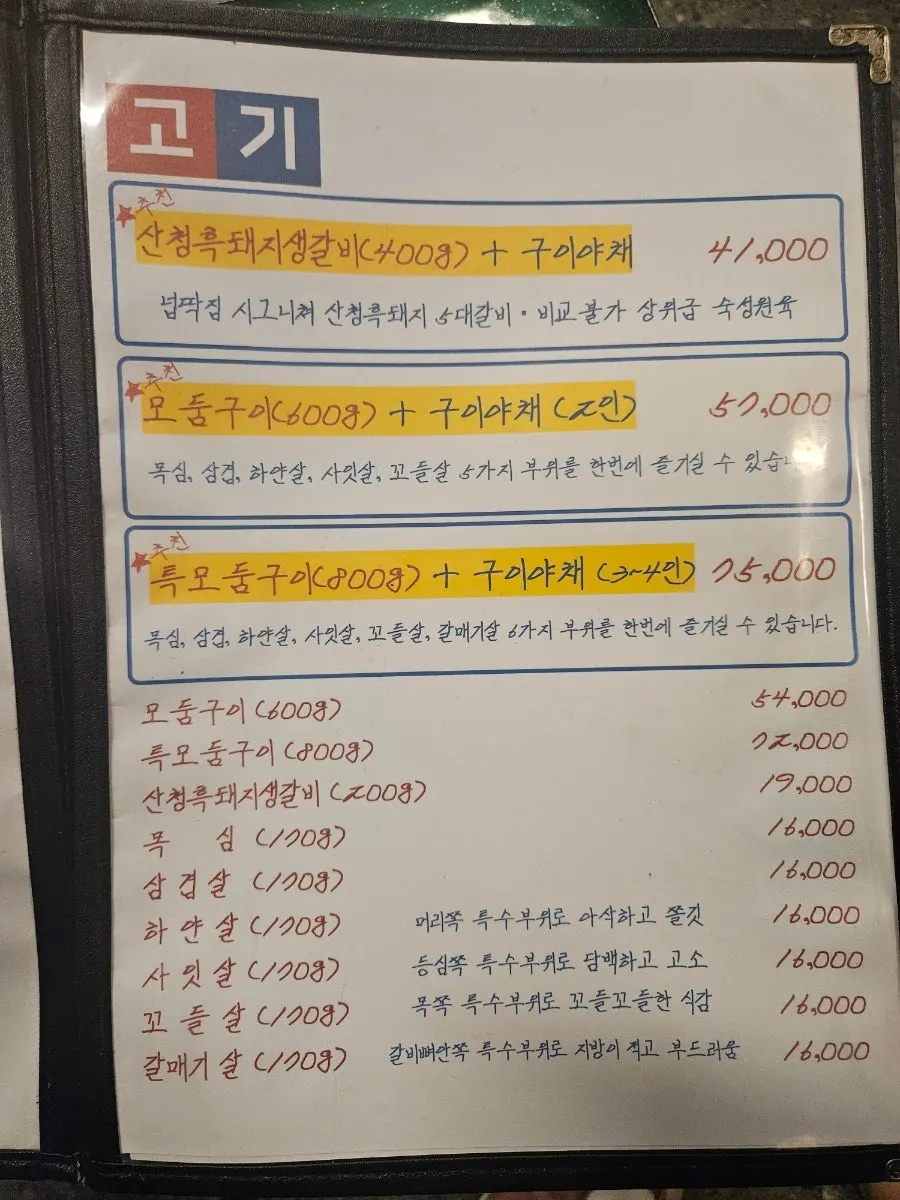 고기
★추천
산청흑돼지생갈비(400g) + 구이야채 41,000
넙딱집 시그니쳐 산청흑돼지 5대갈비·비교불가 상위급 숙성원육
★추천
모둠구이(600g) + 구이야채 (2인) 57,000
목심, 삼겹, 하얀살, 사잇살, 꼬들살 5가지 부위를 한번에 즐기실 수 있습니
★추천
특모둠구이(800g) + 구이야채 (3~4인) 75,000
목심, 삼겹, 하얀살, 사잇살, 꼬들살, 갈매기살 6가지 부위를 한번에 즐기실 수 있습니다.
모둠구이(600g) 54,000
특모둠구이(800g) 72,000
산청흑돼지생갈비(200g) 19,000
목 심 (170g) 16,000
삼겹살 (170g) 16,000
하얀살 (170g) 머리쪽 특수부위로 아삭하고 쫄깃 16,000
사잇살 (170g) 등심쪽 특수부위로 담백하고 고소 16,000
꼬들살 (170g) 목쪽 특수부위로 꼬들꼬들한 식감 16,000
갈매기살 (170g) 갈비뼈안쪽 특수부위로 지방이 적고 부드러움 16,000